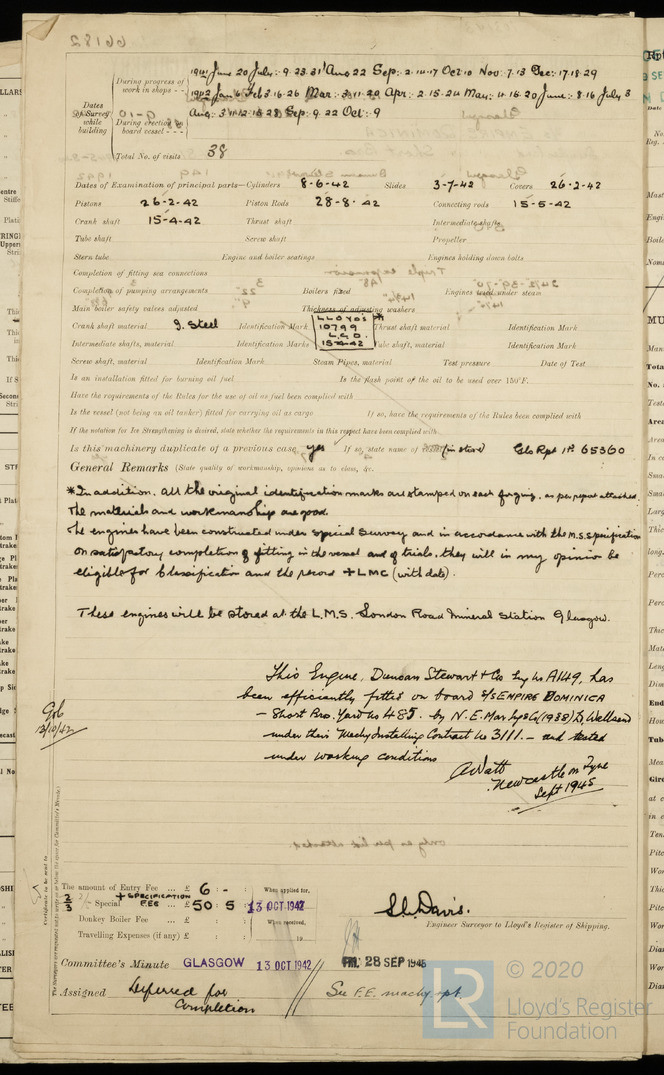 66182
During progress of work in shops - - 1941 June 20 July: 9. 23. 31 Aug 22 Sep: 2. 14. 17 Oct 10 Nov: 7. 13 Dec: 17. 18. 29
1942 Jan 6 Feb 3. 16. 26 Mar: 3. 11. 20 Apr: 2. 15. 24 May: 4. 16. 20 June: 8. 16 July 3
Dates of Survey while building
During erection on board vessel - - - Aug: 3. 11. 12. 18. 28 Sep: 9. 22 Oct: 9
Total No. of visits 38
Dates of Examination of principal parts—Cylinders 8-6-42 Slides 3-7-42 Covers 26-2-42
Pistons 26-2-42 Piston Rods 28-8-42 Connecting rods 15-5-42
Crank shaft 15-4-42 Thrust shaft Intermediate shafts
Tube shaft Screw shaft Propeller
Stern tube Engine and boiler seatings Engines holding down bolts
Completion of fitting sea connections
Completion of pumping arrangements Boilers fixed Engines tried under steam
Main boiler safety valves adjusted Thickness of adjusting washers
Crank shaft material S. Steel Identification Mark LLOYD'S 10799 L.G.D. 15-4-42 * Thrust shaft material Identification Mark
Intermediate shafts, material Identification Marks Tube shaft, material Identification Mark
Screw shaft, material Identification Mark Steam Pipes, material Test pressure Date of Test
Is an installation fitted for burning oil fuel Is the flash point of the oil to be used over 150°F.
Have the requirements of the Rules for the use of oil as fuel been complied with
Is the vessel (not being an oil tanker) fitted for carrying oil as cargo If so, have the requirements of the Rules been complied with
If the notation for Ice Strengthening is desired, state whether the requirements in this respect have been complied with
Is this machinery duplicate of a previous case yes If so, state name of vessel (in store) Gls Rpt No 65360
General Remarks (State quality of workmanship, opinions as to class, &c.
* In addition, all the original identification marks are stamped on each forging, as per report attached.
The materials and workmanship are good.
The engines have been constructed under special survey and in accordance with the M.S. specification
on satisfactory completion of fitting in the vessel and of trials, they will in my opinion be
eligible for Classification and the record + LMC (with date).
These engines will be stored at the L.M.S. London Road Mineral Station Glasgow.
This Engine, Duncan Stewart & Co Eng No A149, has
been efficiently fitted on board S/S EMPIRE DOMINICA
- Short Bros. Yard No 485. by N.E. Mar. Eng Co (1938) Ld, Wallsend
under their Mach'y Installing Contract No 3111. - and tested
under working conditions
A Watt
Newcastle on Tyne
Sept 1945
12/10/42
The amount of Entry Fee ... £ 6 : - : When applied for,
2/3 Special + SPECIFICATION FEE ... £ 50 : 5 13 OCT 1942
Donkey Boiler Fee ... £ : : When received,
Travelling Expenses (if any) £ : : 19
S.L. Davis.
Engineer Surveyor to Lloyd's Register of Shipping.
Committee's Minute GLASGOW 13 OCT 1942 FRI. 28 SEP 1945
Assigned Deferred for Completion See F.E. machy rpt.
© 2020
LR
Lloyd's Register
Foundation